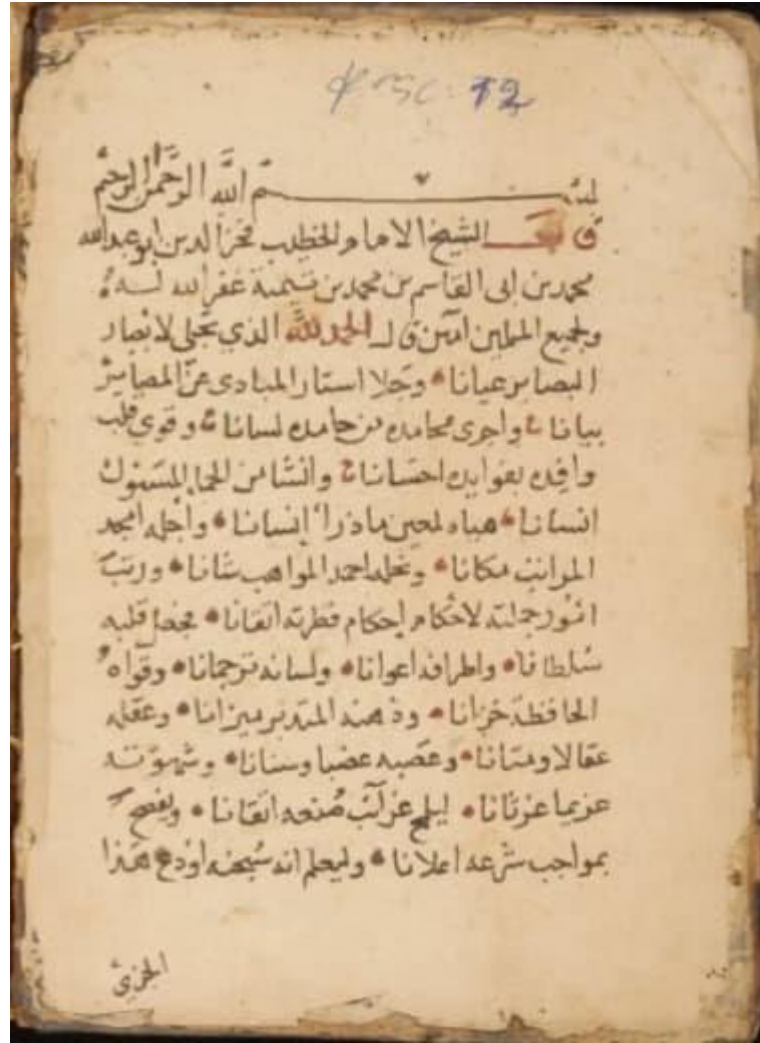 12
بسم الله الرحمن الرحيم
قال الشيخ الامام الخطيب فخر الدين ابو عبد الله
محمد بن ابى القاسم بن محمد بن تيمية غفر الله له
ولجميع المسلمين امين قال الحمد لله الذي تجلى لابصار
البصاير عيانا وجلا استار المبادى عن المصاير
بيانا واجرى محامده من حامده لسانا وقوي قلب
وافده بفوايده احسانا وانشا من الحما المسنون
انسانا هياه لمعين ما ذرا انسانا واحله امجد
المراتب مكانا ونحله احمد المواهب شانا ورتب
جملته لاحكام إحكام فطرته اتقانا فجعل قلبه
سلطانا واطرافه اعوانا ولسانه ترجمانا وقواه
الحافظة خزانا وذهنه المتدبر ميزانا وعقله
عقالا ومتانا وعصبه عضبا وسنانا وشهوته
عزيما عرثانا صنعه اتقانا ويفصح
بمواجب شرعه اعلانا وليعلم انه سبحنه اودع هذا
الجزئ